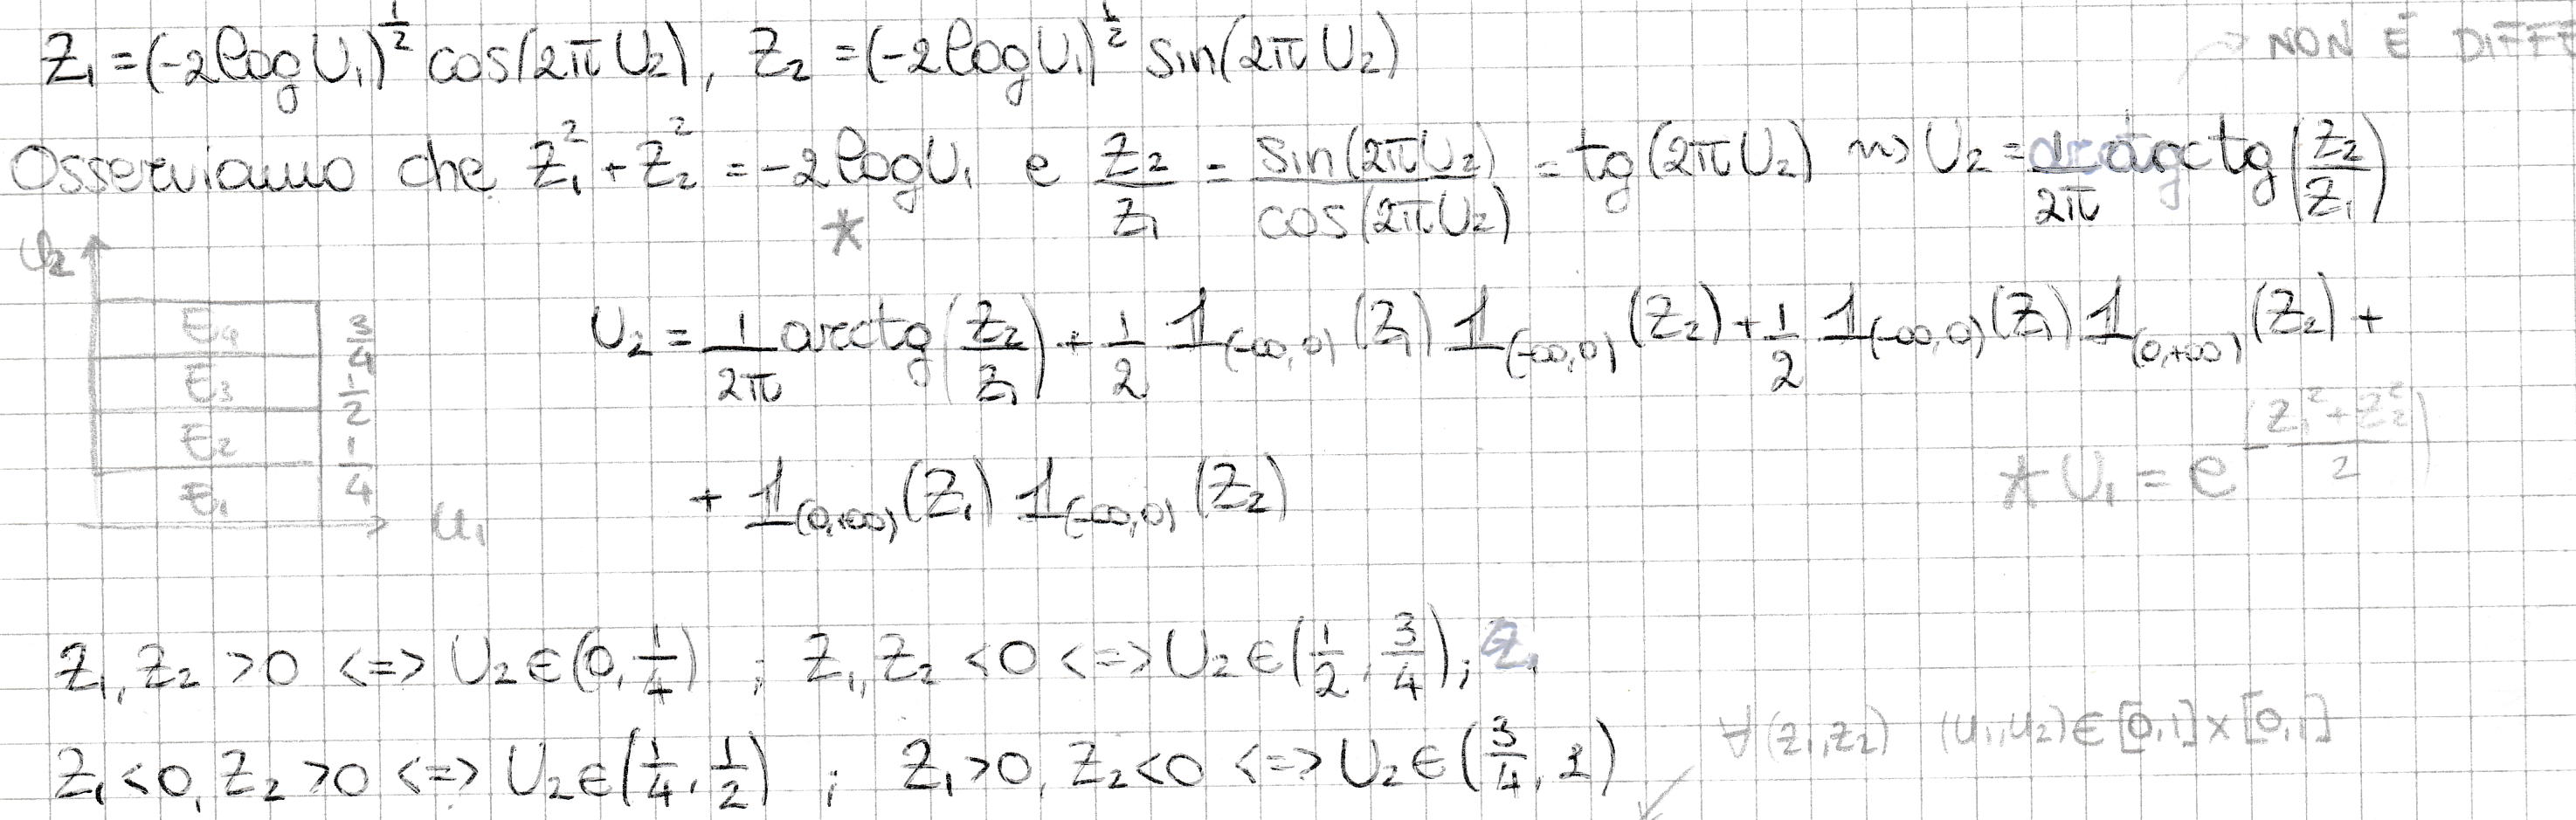 Z₁ = (-2logU₁)^{1/2} cos(2πU₂), Z₂ = (-2logU₁)^{1/2} sin(2πU₂)
NON È
Osserviamo che Z₁² + Z₂² = -2logU₁ e Z₂/Z₁ = sin(2πU₂)/cos(2πU₂) = tg(2πU₂) ⇝ U₂ = 1/2π arctg(Z₂/Z₁)
*
U₂
E₄ 3/4
E₃ 1/2
E₂ 1/4
E₁
U₁
U₂ = 1/2π arctg(Z₂/Z₁) + 1/2 𝟙_{(-∞,0)}(Z₁) 𝟙_{(-∞,0)}(Z₂) + 1/2 𝟙_{(-∞,0)}(Z₁) 𝟙_{(0,+∞)}(Z₂) +
+ 𝟙_{(0,+∞)}(Z₁) 𝟙_{(-∞,0)}(Z₂)
* U₁ = e^{-(Z₁²+Z₂²)/2}
Z₁, Z₂ > 0 <=> U₂ ∈ (0, 1/4) ; Z₁, Z₂ < 0 <=> U₂ ∈ (1/2, 3/4);
Z₁ < 0, Z₂ > 0 <=> U₂ ∈ (1/4, 1/2) ; Z₁ > 0, Z₂ < 0 <=> U₂ ∈ (3/4, 1)
∀(z₁,z₂) (u₁,u₂) ∈ [0,1] × [0,1]